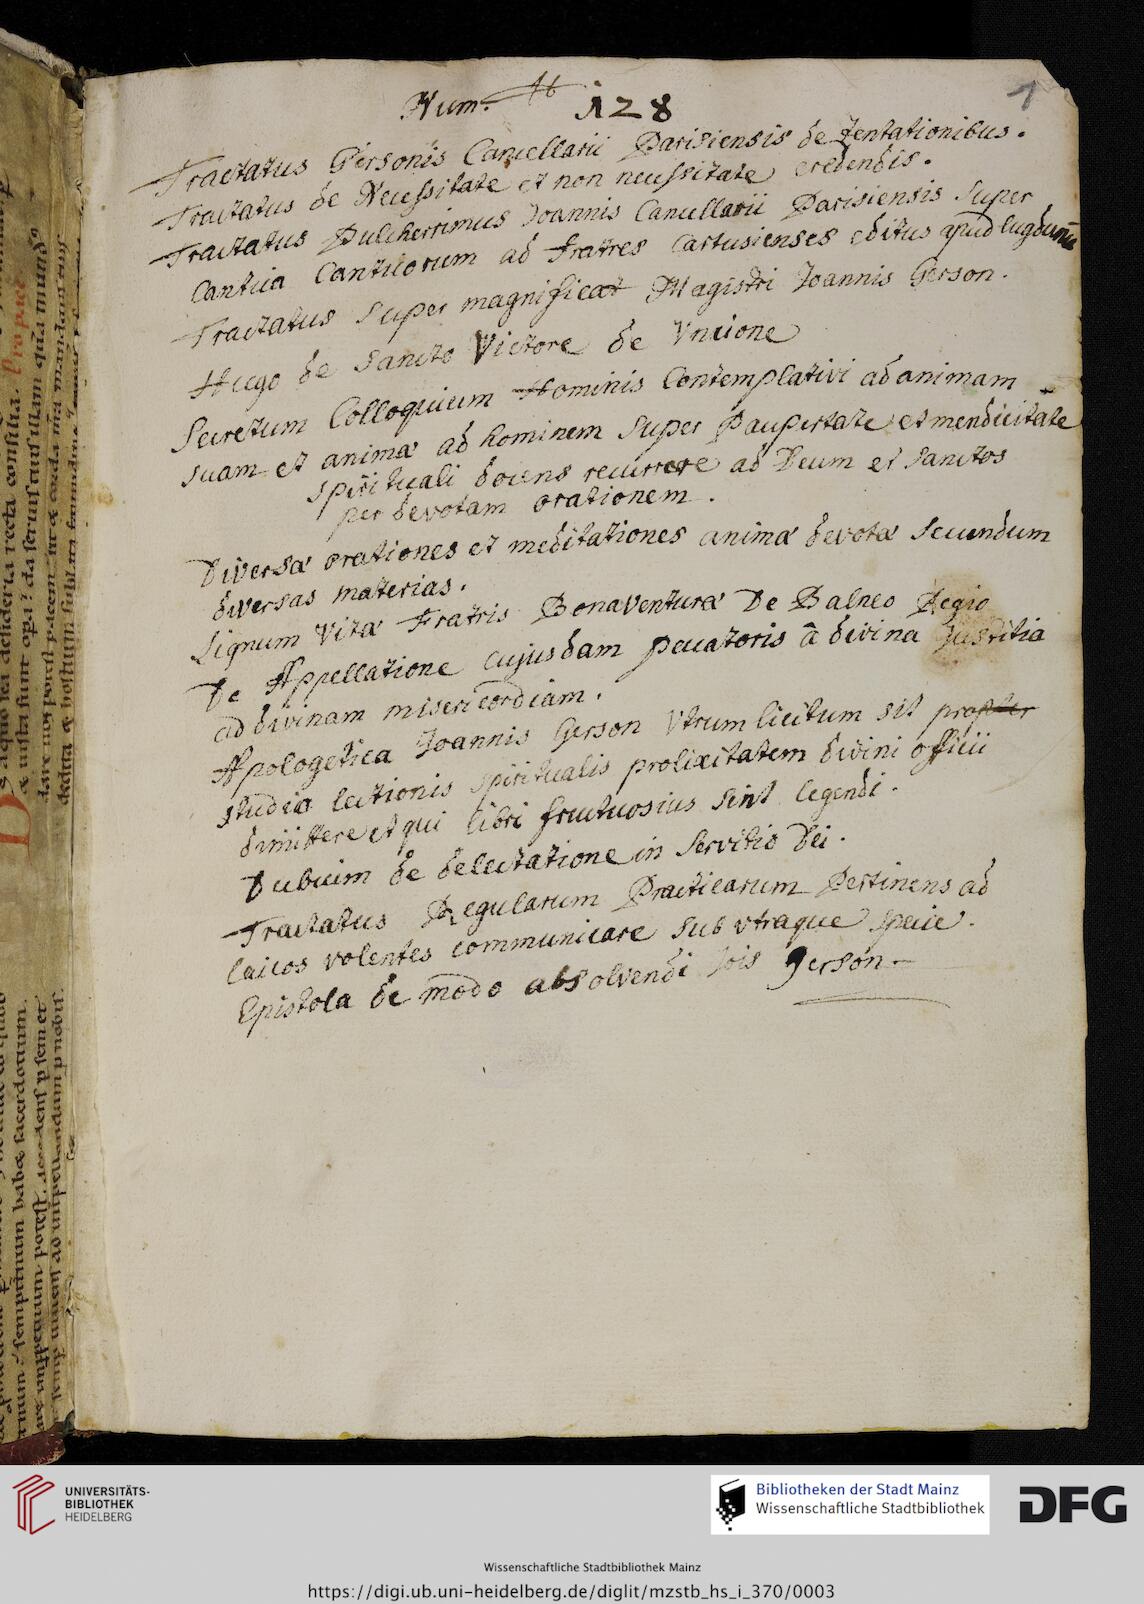 Num. 16 128
1
Tractatus Gersonis Cancellarii Parisiensis de Tentationibus.
Tractatus de Necessitate et non necessitate credendis.
Tractatus Pulcherrimus Joannis Cancellarii Parisiensis super
Cantica Canticorum ad fratres Cartusienses editus apud lugdunū
Tractatus super magnificat Magistri Joannis Gerson.
Hugo de Sancto Victore de Vncione
Secretum Colloquium Hominis Contemplativi ad animam
suam et animæ ad hominem super Paupertate et mendicitate
spirituali docens recurrere ad Deum et sanctos
per devotam orationem.
Diversæ orationes et meditationes animæ devotæ secundum
diversas materias.
Lignum Vitæ Fratris Bonaventuræ De Balneo Regio
De Appellatione cujusdam peccatoris â divina Justitia
ad divinam misericordiam.
Apologetica Joannis Gerson Vtrum licitum sit propter
studia lectionis spiritualis prolixitatem divini officii
dimittere et qui libri fructuosius sint legendi.
Dubium de delectatione in servitio Dei.
Tractatus Regularum Practicarum Pertinens ad
laicos volentes communicare sub vtraque specie.
Epistola de modo absolvendi Jois Gerson
UNIVERSITÄTS-
BIBLIOTHEK
HEIDELBERG
Bibliotheken der Stadt Mainz
Wissenschaftliche Stadtbibliothek
DFG
Wissenschaftliche Stadtbibliothek Mainz
https://digi.ub.uni-heidelberg.de/diglit/mzstb_hs_i_370/0003